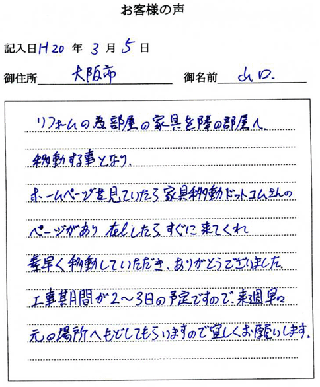 お客様の声
記入日 H20 年 3 月 5 日
御住所 大阪市 御名前 山口
リフォームの為部屋の家具を隣の部屋へ
移動する事となり、
ホームページを見ていたら家具移動ドットコムさんの
ページがあり 在しましたらすぐに来てくれ
素早く移動していただき、ありがとうございました
工事期間が2〜3日の予定ですので、来週早々
元の場所へもどしてもらいますので宜しくお願いします。